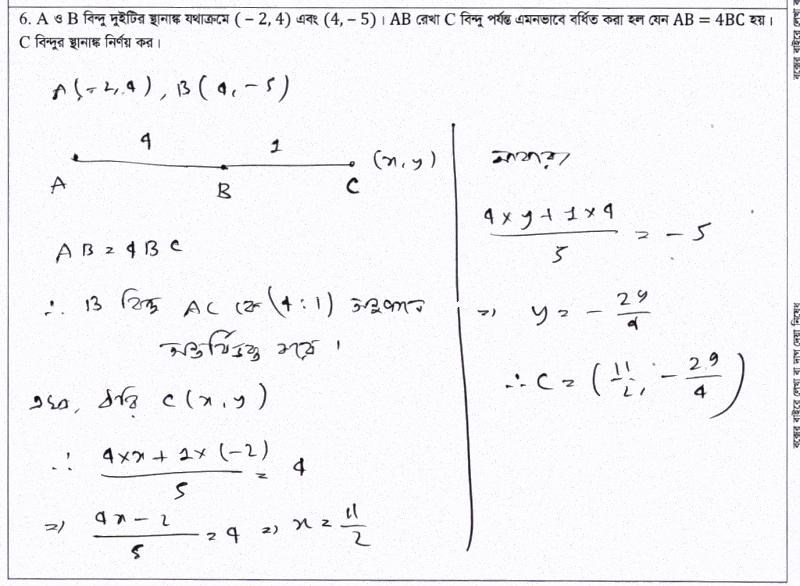 6. A ও B বিন্দু দুইটির স্থানাঙ্ক যথাক্রমে (– 2, 4) এবং (4, – 5)। AB রেখা C বিন্দু পর্যন্ত এমনভাবে বর্ধিত করা হল যেন AB = 4BC হয়।
C বিন্দুর স্থানাঙ্ক নির্ণয় কর।
A(-2, 4), B(4, -5)
4 1
(x, y)
A B C
AB = 4BC
∴ B বিন্দু AC কে (4:1) অনুপাতে
অন্তর্বিভক্ত করে।
এখন, ধরি C(x, y)
∴ (4×x + 1×(-2))/5 = 4
⇒ (4x - 2)/5 = 4 ⇒ x = 11/2
আবার,
(4×y + 1×4)/5 = -5
⇒ y = - 29/4
∴ C = (11/2, - 29/4)